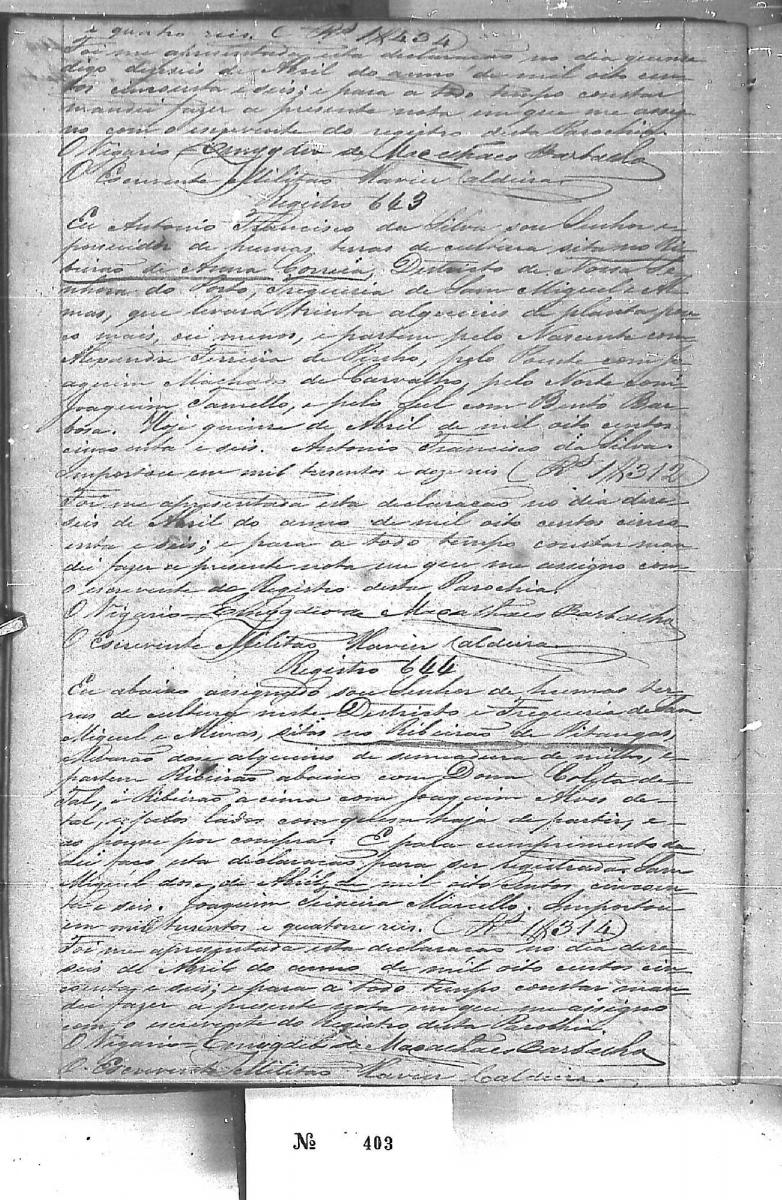 e quatro reis. (Rs 1$434)
Foi me apresentada esta declaração no dia quinze
digo deseis de Abril do anno de mil oito cen
tos cincoenta e seis; e para a todo tempo constar
mandei fazer a presente nota em que me assig
no com o escrevente do registro desta Parochia.
O Vigario Emygdio de Magalhaes Barbalho
O Escrevente Militão Xavier Caldeira
Registro 643
Eu Antonio Francisco da Silva sou Senhor e
possuidor de humas terras de cultura sitas no Ri
beirão de Correia, Districto de Nossa Se
nhora do Porto, Freguesia de Sam Miguel e Al
mas, que levará trinta alqueires de planta, pou
co mais, ou menos, e partem pelo Nascente com
Alexandre Ferreira de pelo Poente com Jo
aquim Machado de Carvalho, pelo Norte com
Joaquim e pelo Sul com Bento Bar
bosa. Hoje quinze de Abril de mil oito centos
cincoenta e seis. Antonio Francisco da Silva.
Importou em mil tresentos e doze reis (Rs 1$312)
Foi me apresentada esta declaração no dia deze
seis de Abril do anno de mil oito centos cinco
enta e seis; e para a todo tempo constar man
dei fazer a presente nota em que me assigno com
o escrevente do Registro desta Parochia.
O Vigario Emygdio de Magalhaes Barbalho
O Escrevente Militão Xavier Caldeira
Registro 644
Eu abaixo assignado sou Senhor de humas ter
ras de cultura neste Districto e Freguesia de Sam
Miguel e Almas, sitas no Ribeirão de Pitangas,
levarão dous alqueires de semeadura de milho, e
partem Ribeirão abaixo com Dona de
Tal, e Ribeirão acima com Joaquim Alves de
tal, e pelos lados com quem haja de partir, e
as pouve por compra. E para cumprimento da
Lei faço esta declaração para ser registrada. Sam
Miguel dose de Abril de mil oito centos cincoen
ta e seis. Joaquim Teixeira Marcello. Importou
em mil tresentos e quatorze reis. (Rs 1$314)
Foi me apresentada esta declaração no dia deze
seis de Abril do anno de mil oito centos cin
coenta e seis; e para a todo tempo constar man
dei fazer a presente nota em que me assigno
com o escrevente do Registro desta Parochia.
O Vigario Emygdio de Magalhaes Barbalho
O Escrevente Militão Xavier Caldeira.
№ 403